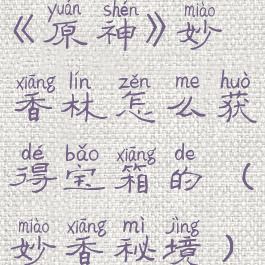 yuán shén miào
《原神》妙
xiāng lín zěn me huò
香林怎么获
dé bǎo xiāng de
得宝箱的（
miào xiāng mì jìng
妙香秘境）